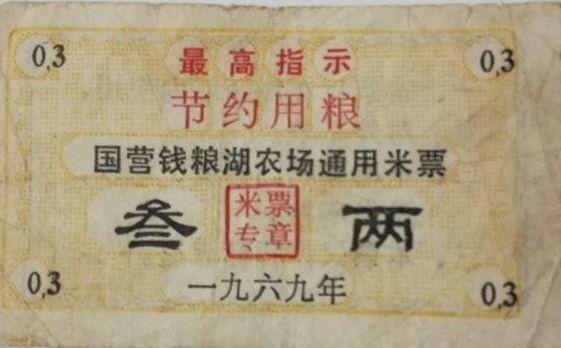 0,3 最高指示 0,3
节约用粮
国营钱粮湖农场通用米票
叁 米票专章 两
0,3 一九六九年 0,3